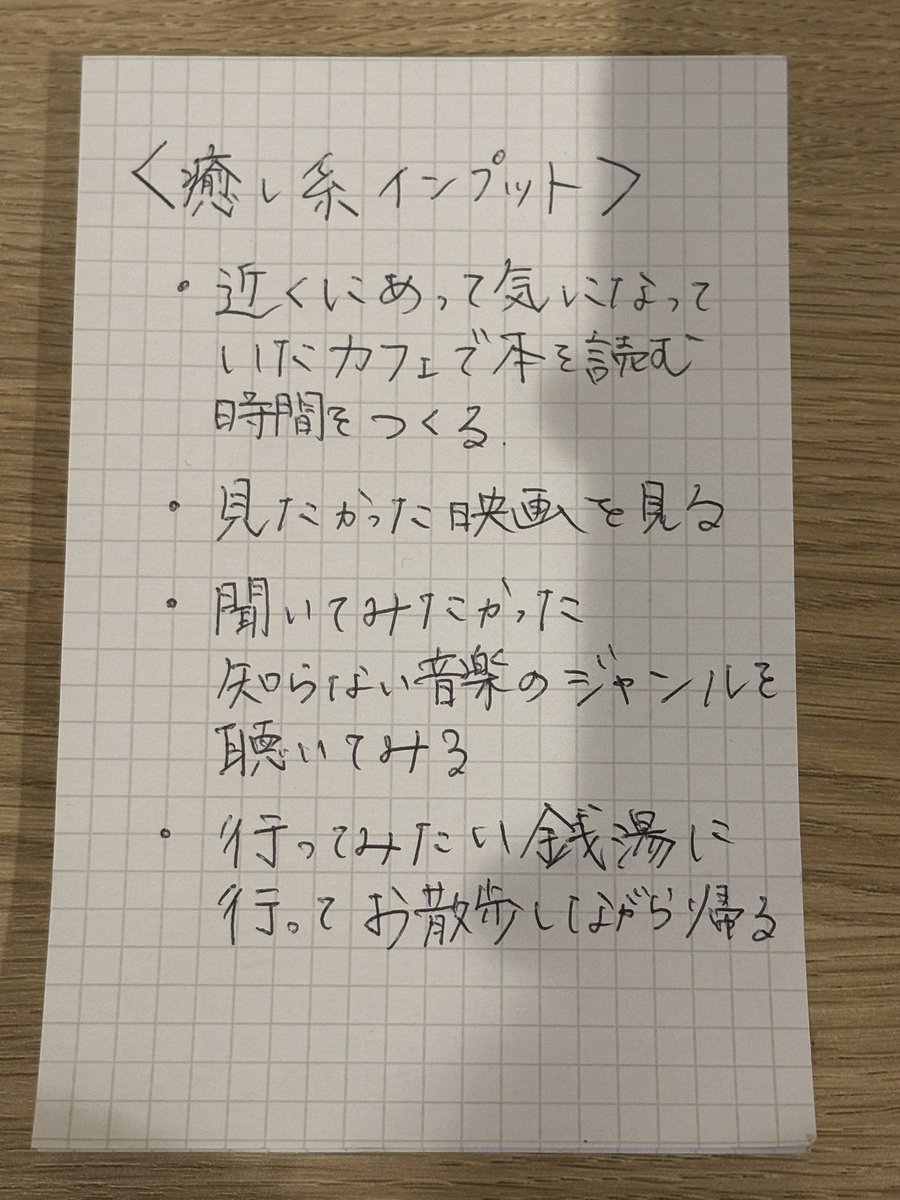 <癒し系インプット>
・近くにあって気になって
いたカフェで本を読む
時間をつくる.
・見たかった映画を見る
・聞いてみたかった
知らない音楽のジャンルを
聴いてみる
・行ってみたい銭湯に
行ってお散歩しながら帰る